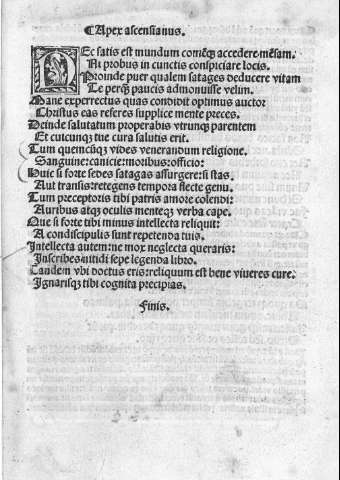 ¶Apex ascensianus.
NEc satis est mundum comēq; accedere mēsam.
Ni probus in cunctis conspiciare locis.
Proinde puer qualem satages deducere vitam
Te perq; paucis admonuisse velim.
Mane experrectus quas condidit optimus auctor
Christus eas referes supplice mente preces.
Deinde salutatum properabis vtrunq; parentem
Et cuicunq; tue cura salutis erit.
Tum quemcūq; vides venerandum religione.
Sanguine: canicie: moribus: officio:
Huic si forte sedes satagas assurgere: si stas.
Aut transis: retegens tempora flecte genu.
Tum preceptoris tibi patris amore colendi:
Auribus atq; oculis menteq; verba cape.
Que si forte tibi minus intellecta reliquit:
A condiscipulis sunt repetenda tuis.
Intellecta autem: ne mox neglecta queraris:
Inscribes nitidi sepe legenda libro.
Tandem vbi doctus eris: reliquum est bene viueres cure.
Ignarisq; tibi cognita precipias.
Finis.